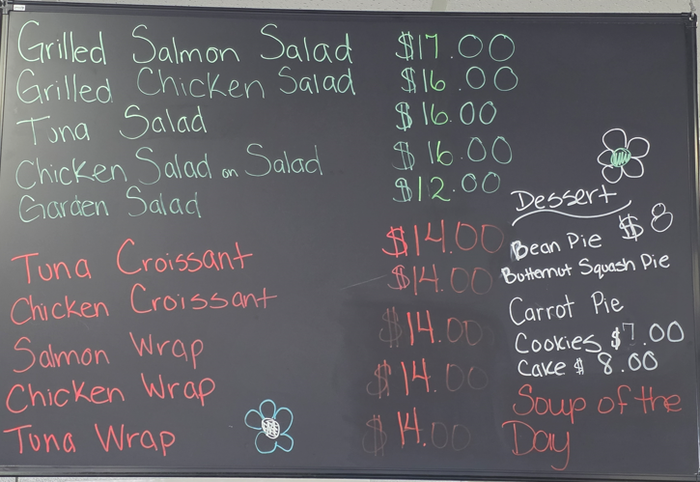 Grilled Salmon Salad $17.00
Grilled Chicken Salad $16.00
Tuna Salad $16.00
Chicken Salad on Salad $16.00
Garden Salad $12.00
Tuna Croissant $14.00
Chicken Croissant $14.00
Salmon Wrap $14.00
Chicken Wrap $14.00
Tuna Wrap $14.00
Dessert
Bean Pie $8
Butternut Squash Pie
Carrot Pie
Cookies $7.00
Cake $8.00
Soup of the
Day